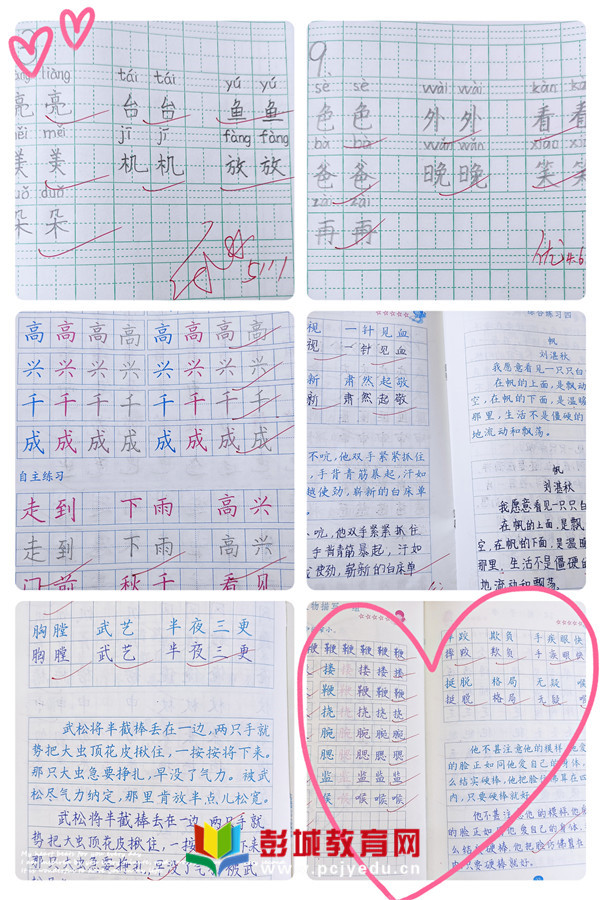 liàng
tái tái
yú yú
亮 亮
台 台
鱼 鱼
měi měi
jī jī
fàng fàng
美 美
机 机
放 放
duǒ
朵 朵
9.
sè sè
wài wài
kàn kàn
色 色
外 外
看 看
bà bà
wǎn wǎn
xiào
爸 爸
晚 晚
笑 笑
zài zài
再 再
优 4.6
高 高 高 高 高 高 高 高
兴 兴 兴 兴 兴 兴 兴 兴
千 千 千 千 千 千 千 千
成 成 成 成 成 成 成 成
自主练习
走到 下雨 高兴
走到 下雨 高兴
门前 秋千 看见
视 一针见血
视 一针见血
新 肃然起敬
新 肃然起敬
不吭，他双手紧紧抓住
，手背青筋暴起，汗如
越使劲，崭新的白床单
吭，他双手紧紧抓住
手背青筋暴起，汗如
使劲，崭新的白床单
综合练习四
帆
刘湛秋
我愿意看见一只只白
在帆的上面，是飘动
空，在帆的下面，是温暖
那里，生活不是僵硬的
地流动和飘荡。
帆
刘湛秋
我愿意看见一只只白
在帆的上面，是飘
空，在帆的下面，是温暖
那里，生活不是僵硬的
地流动和飘荡。
胸膛 武艺 半夜三更
胸膛 武艺 半夜三更
武松将半截棒丢在一边，两只手就
势把大虫顶花皮揪住，一按按将下来。
那只大虫急要挣扎，早没了气力。被武
松尽气力纳定，那里肯放半点儿松宽。
武松将半截棒丢在一边，两只手就
势把大虫顶花皮揪住，一按按将下来
那只大虫急要挣扎，早没了气力。被武
鞭 鞭 鞭 鞭 鞭
搂 搂 搂 搂 搂
鞭 鞭 鞭 鞭
挠 挠 挠 挠 挠
腕 腕 腕 腕 腕
腮 腮 腮 腮
监 监 监 监
喉 喉 喉 喉
摔跤 欺负 手疾眼快
摔跤 欺负 手疾眼快
挺脱 格局 无疑 喉
挺脱 格局 无疑 喉
他不甚注意他的模样，他爱
的脸正如同他爱自己的身体，
么结实硬棒；他把脸仿佛算在四
内，只要硬棒就好。
他不甚注意他的模样，他爱
的脸正如同他爱自己的身体，
么结实硬棒；他把脸仿佛算在
内，只要硬棒就好。
彭城教育网
www.pcjyedu.cn